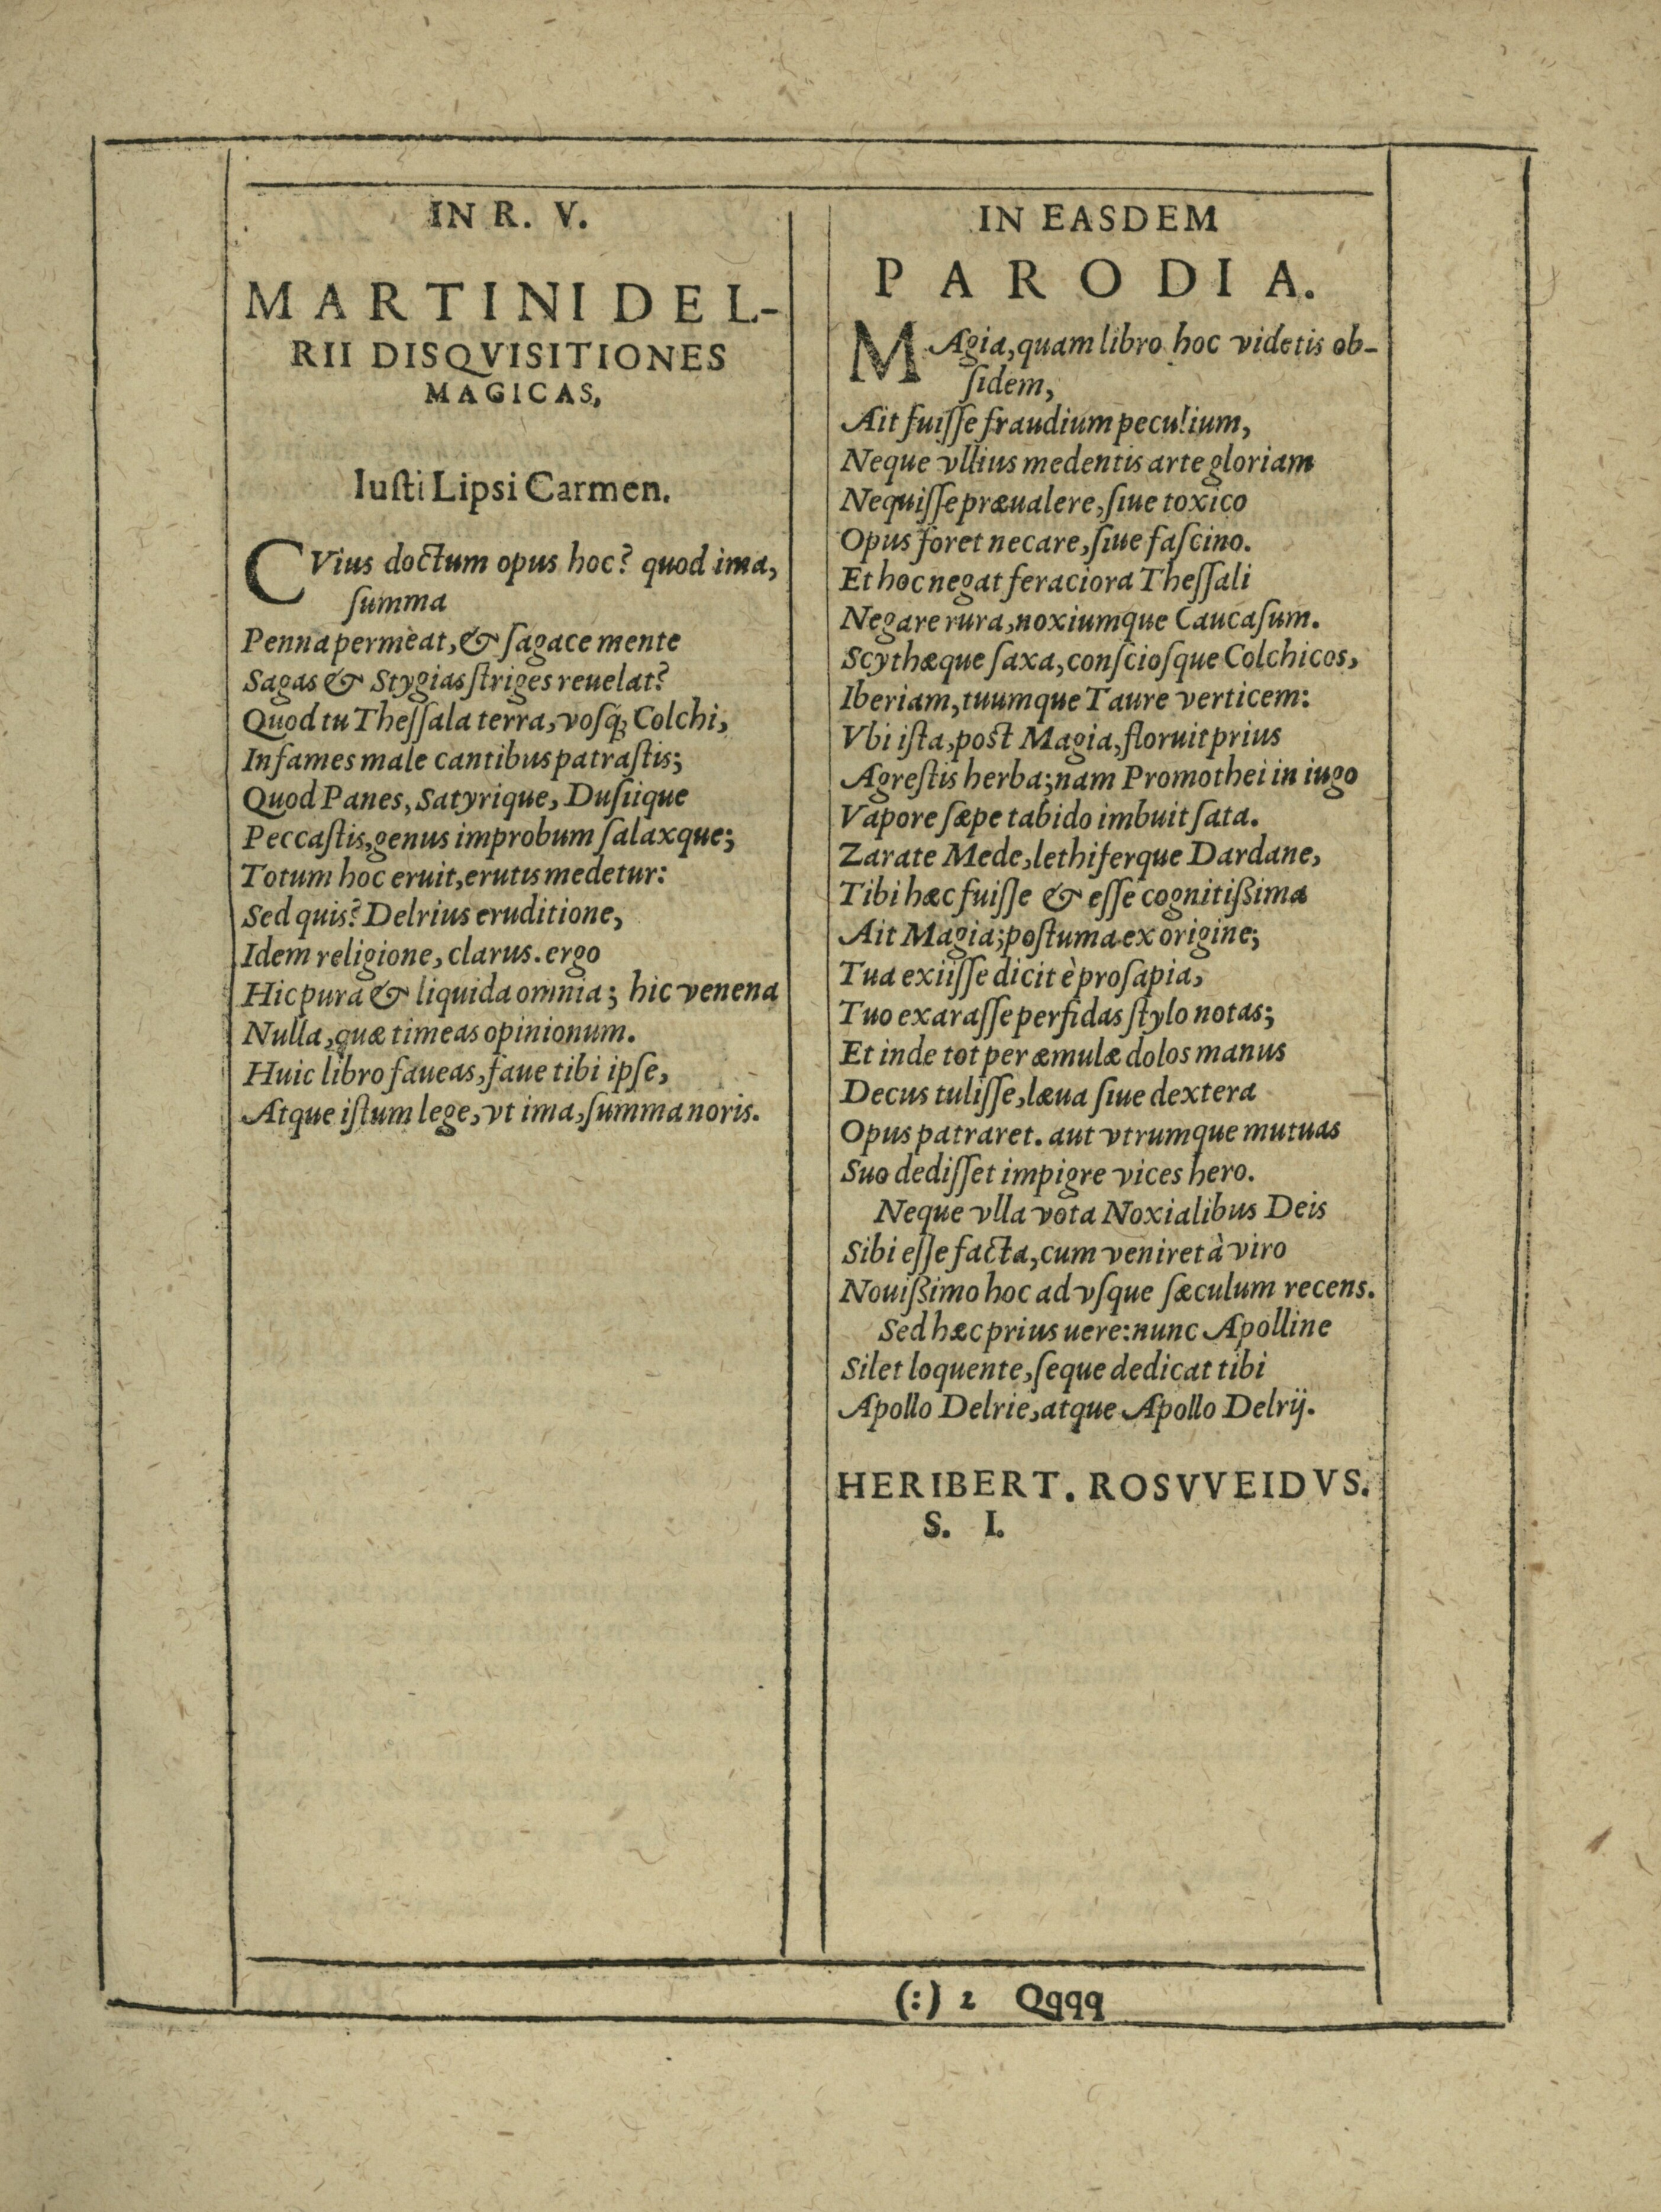 IN R. V.
MARTINI DEL-
RII DISQVISITIONES
MAGICAS,
Iuſti Lipsi Carmen.
CVius doctum opus hoc? quod ima,
ſumma
Penna permeat, & ſagace mente
Sagas & Stygias ſtriges reuelat?
Quod tu Theſſala terra, voſq; Colchi,
Infames male cantibus patraſtis;
Quod Panes, Satyrique, Duſiique
Peccaſtis, genus improbum ſalaxque;
Totum hoc eruit, erutis medetur:
Sed quis? Delrius eruditione,
Idem religione, clarus. ergo
Hic pura & liquida omnia; hic venena
Nulla, quæ timeas opinionum.
Huic libro faueas, faue tibi ipſe,
Atque iſtum lege, vt ima, ſumma noris.
IN EASDEM
PARODIA.
MAgia, quam libro hoc videtis ob-
ſidem,
Ait fuiſſe fraudium peculium,
Neque vllius medentis arte gloriam
Nequiſſe præualere, ſiue toxico
Opus foret necare, ſiue faſcino.
Et hoc negat feraciora Theſſali
Negare rura, noxiumque Caucaſum.
Scythæque ſaxa, conſcioſque Colchicos,
Iberiam, tuumque Taure verticem:
Vbi iſta, post Magia, floruit prius
Agreſtis herba; nam Promothei in iugo
Vapore ſæpe tabido imbuit ſata.
Zarate Mede, lethiferque Dardane,
Tibi hæc fuiſſe & eſſe cognitißima
Ait Magia; poſtuma ex origine;
Tua exiiſſe dicit è proſapia,
Tuo exaraſſe perfidas ſtylo notas;
Et inde tot per æmulæ dolos manus
Decus tuliſſe, læua ſiue dextera
Opus patraret. aut vtrumque mutuas
Suo dediſſet impigre vices hero.
Neque vlla vota Noxialibus Deis
Sibi eſſe facta, cum veniret à viro
Nouißimo hoc ad vſque ſæculum recens.
Sed hæc prius uere: nunc Apolline
Silet loquente, ſeque dedicat tibi
Apollo Delrie, atque Apollo Delrij.
HERIBERT. ROSVVEIDVS.
S. I.
(:) 2 Qqqq